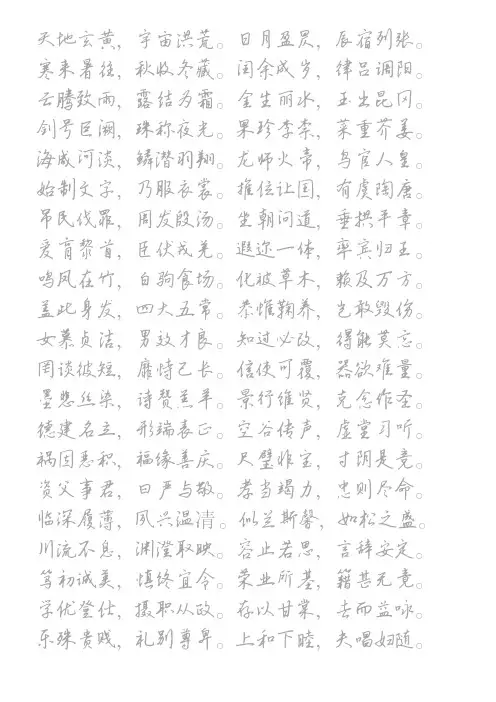 天地玄黄，宇宙洪荒。日月盈昃，辰宿列张。
寒来暑往，秋收冬藏。闰余成岁，律吕调阳。
云腾致雨，露结为霜。金生丽水，玉出昆冈。
剑号巨阙，珠称夜光。果珍李柰，菜重芥姜。
海咸河淡，鳞潜羽翔。龙师火帝，鸟官人皇。
始制文字，乃服衣裳。推位让国，有虞陶唐。
吊民伐罪，周发殷汤。坐朝问道，垂拱平章。
爱育黎首，臣伏戎羌。遐迩一体，率宾归王。
鸣凤在竹，白驹食场。化被草木，赖及万方。
盖此身发，四大五常。恭惟鞠养，岂敢毁伤。
女慕贞洁，男效才良。知过必改，得能莫忘。
罔谈彼短，靡恃己长。信使可覆，器欲难量。
墨悲丝染，诗赞羔羊。景行维贤，克念作圣。
德建名立，形端表正。空谷传声，虚堂习听。
祸因恶积，福缘善庆。尺璧非宝，寸阴是竞。
资父事君，曰严与敬。孝当竭力，忠则尽命。
临深履薄，夙兴温凊。似兰斯馨，如松之盛。
川流不息，渊澄取映。容止若思，言辞安定。
笃初诚美，慎终宜令。荣业所基，籍甚无竟。
学优登仕，摄职从政。存以甘棠，去而益咏。
乐殊贵贱，礼别尊卑。上和下睦，夫唱妇随。